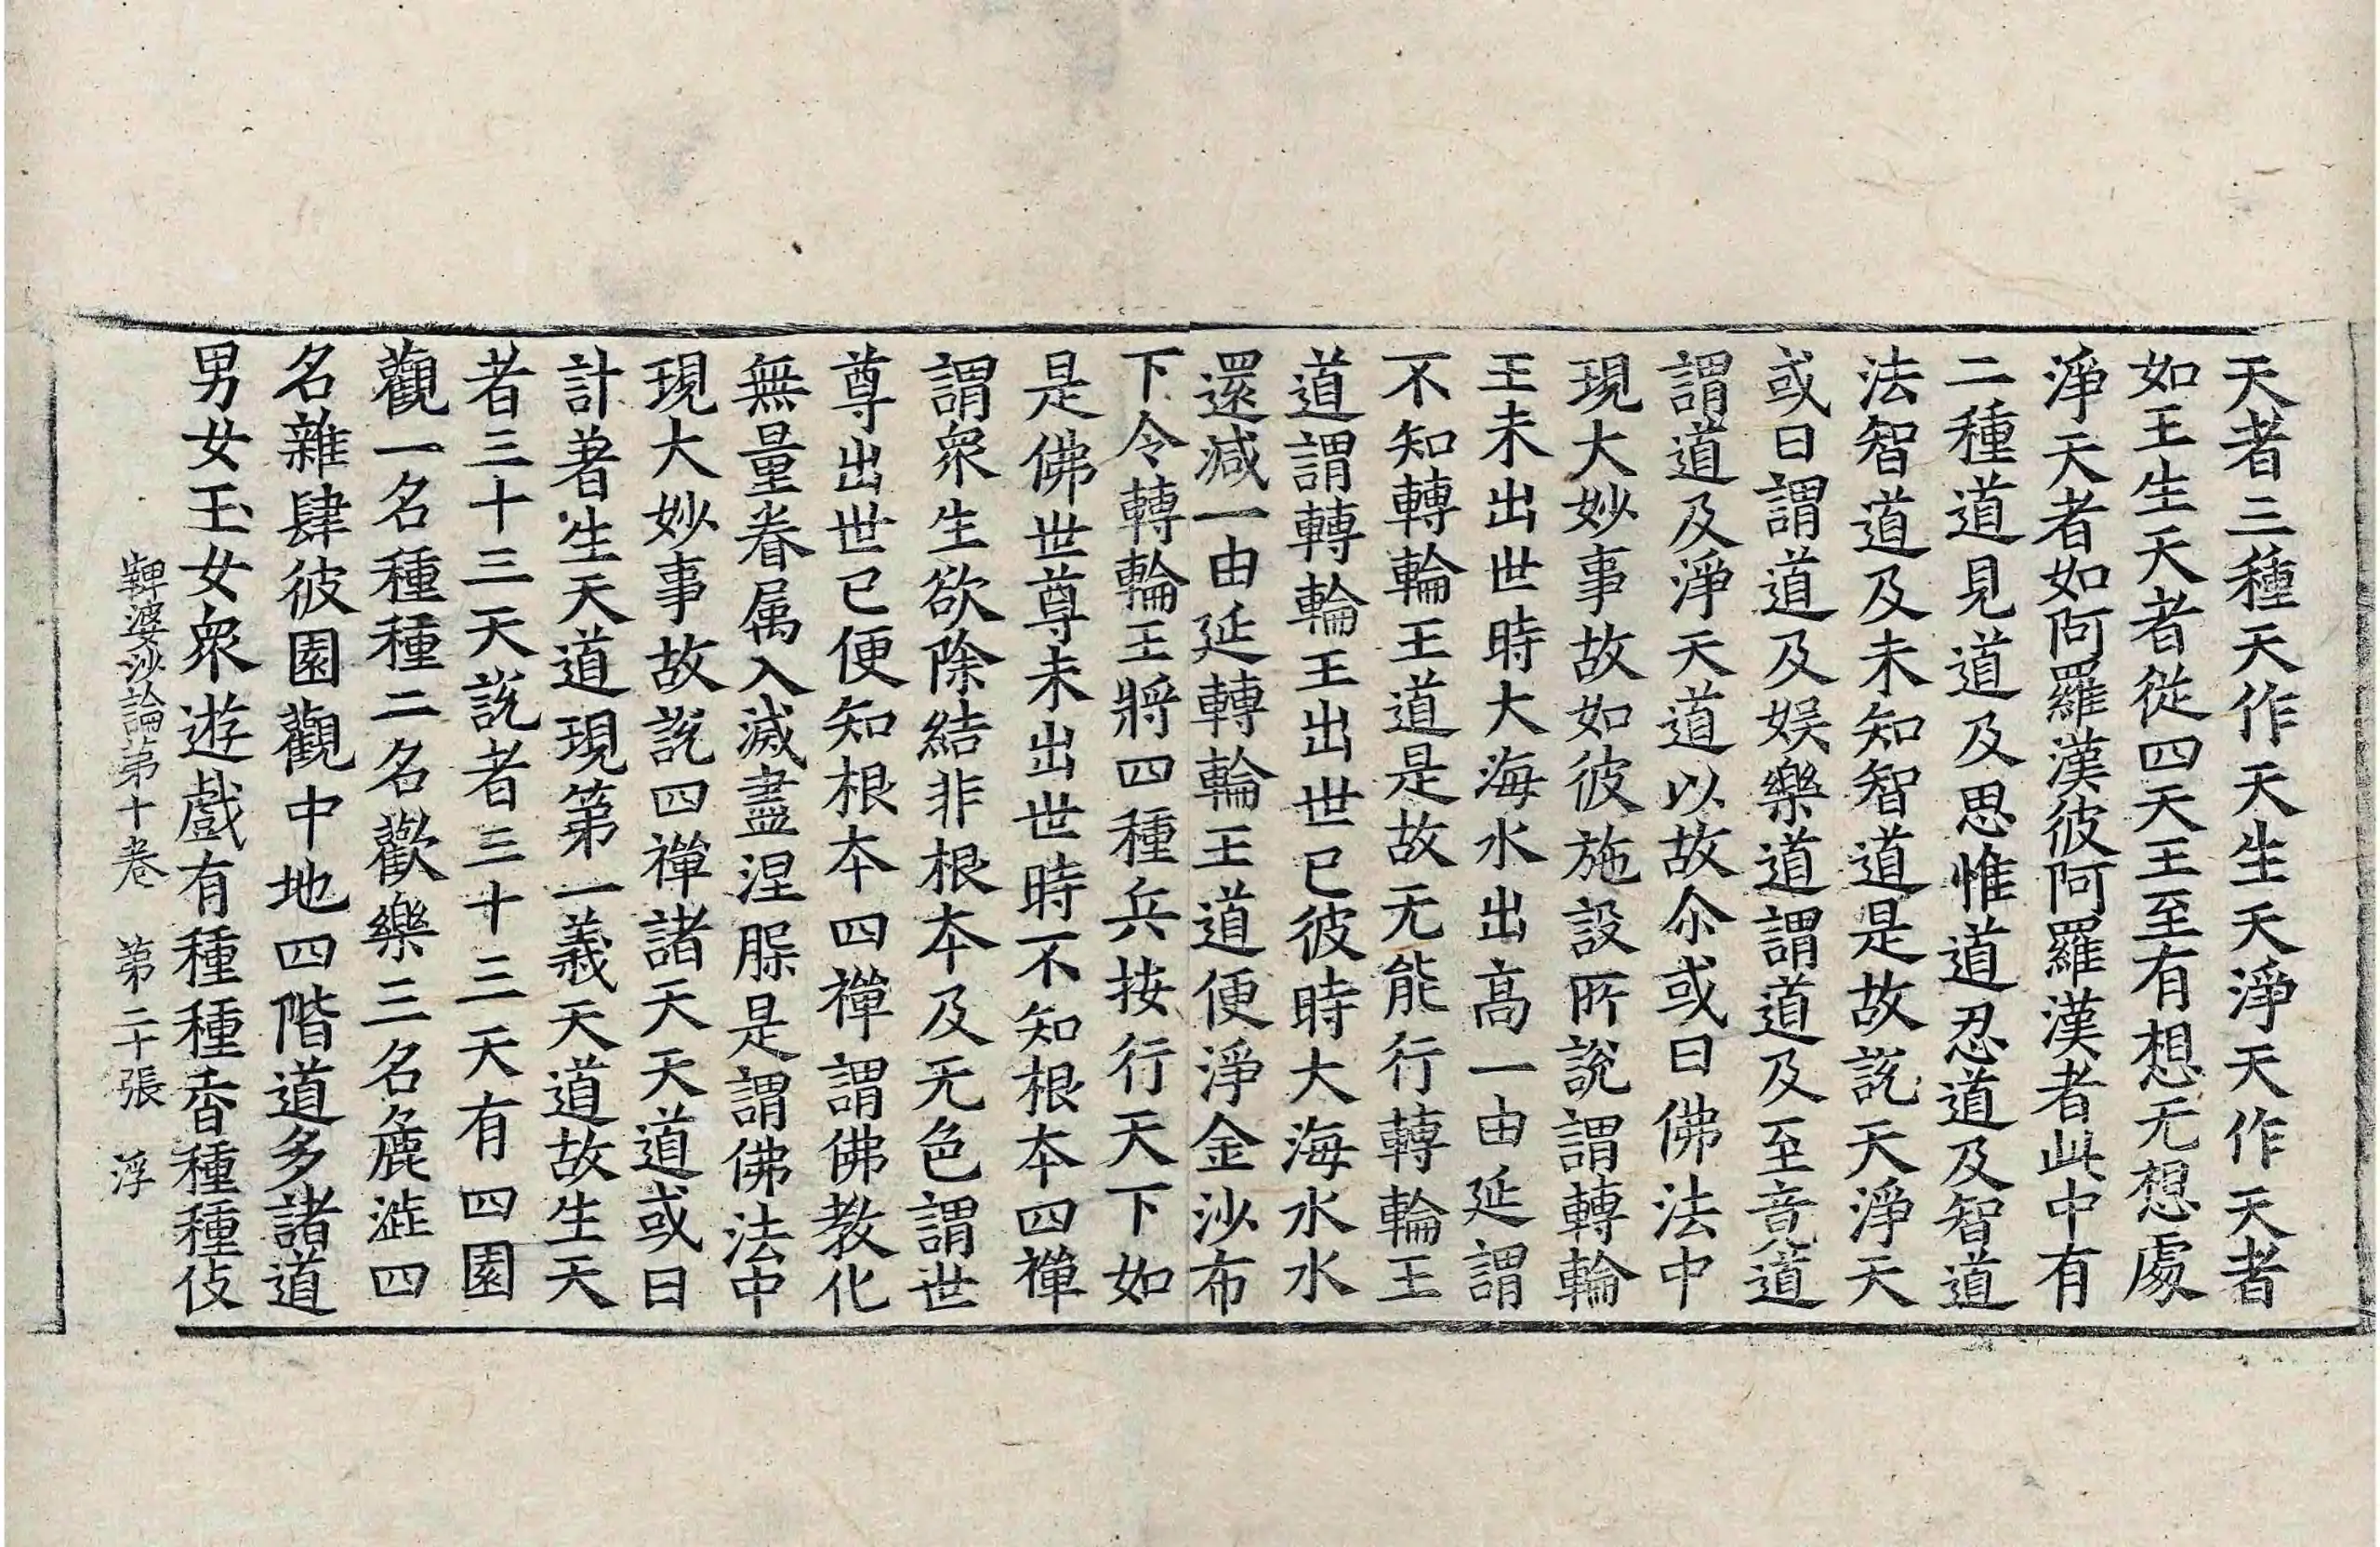 天者三種天作天生天淨天作天者
如王生天者從四天王至有想无想處
淨天者如阿羅漢彼阿羅漢者此中有
二種道見道及思惟道忍道及智道
法智道及未知智道是故說天淨天
或曰謂道及娛樂道謂道及至竟道
謂道及淨天道以故尒或曰佛法中
現大妙事故如彼施設所說謂轉輪
王未出世時大海水出高一由延謂
不知轉輪王道是故无能行轉輪王
道謂轉輪王出世已彼時大海水水
還減一由延轉輪王道便淨金沙布
下令轉輪王將四種兵按行天下如
是佛世尊未出世時不知根本四禪
謂衆生欲除結非根本及无色謂世
尊出世已便知根本四禪謂佛教化
無量眷属入滅盡涅槃是謂佛法中
現大妙事故說四禪諸天天道或曰
計著生天道現第一義天道故生天
者三十三天說者三十三天有四園
觀一名種種二名歡樂三名麁澁四
名雜肆彼園觀中地四階道多諸道
男女玉女衆遊戲有種種香種種伎
鞞婆沙論第十卷　第二十張　浮